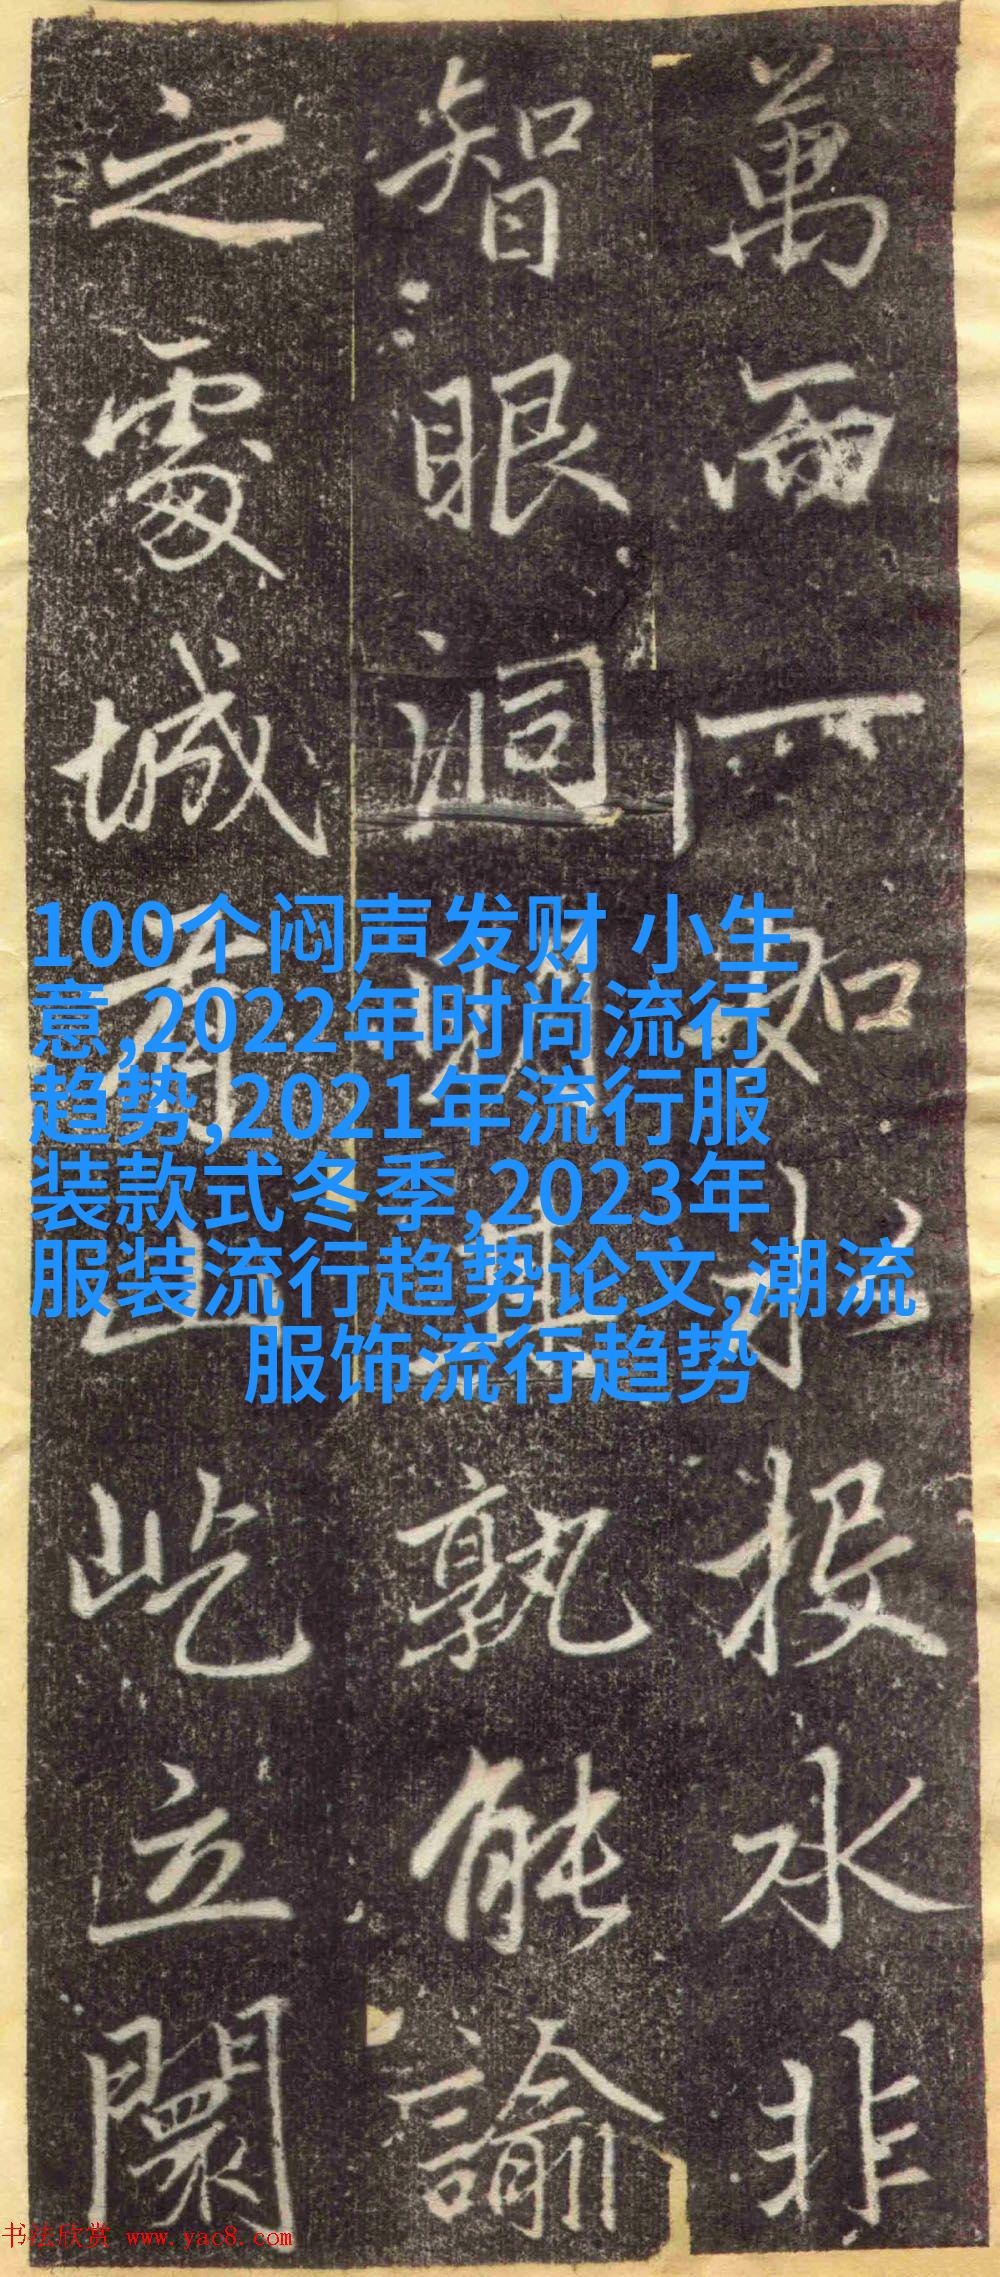 萬而一如投水非
智眼洞明孰能諭
之處城有屹立闤
100个闷声发财 小生
意,2022年时尚流行
趋势,2021年流行服
装款式冬季,2023年
服装流行趋势论文,潮流
服饰流行趋势
书法欣赏 www.yac8.com